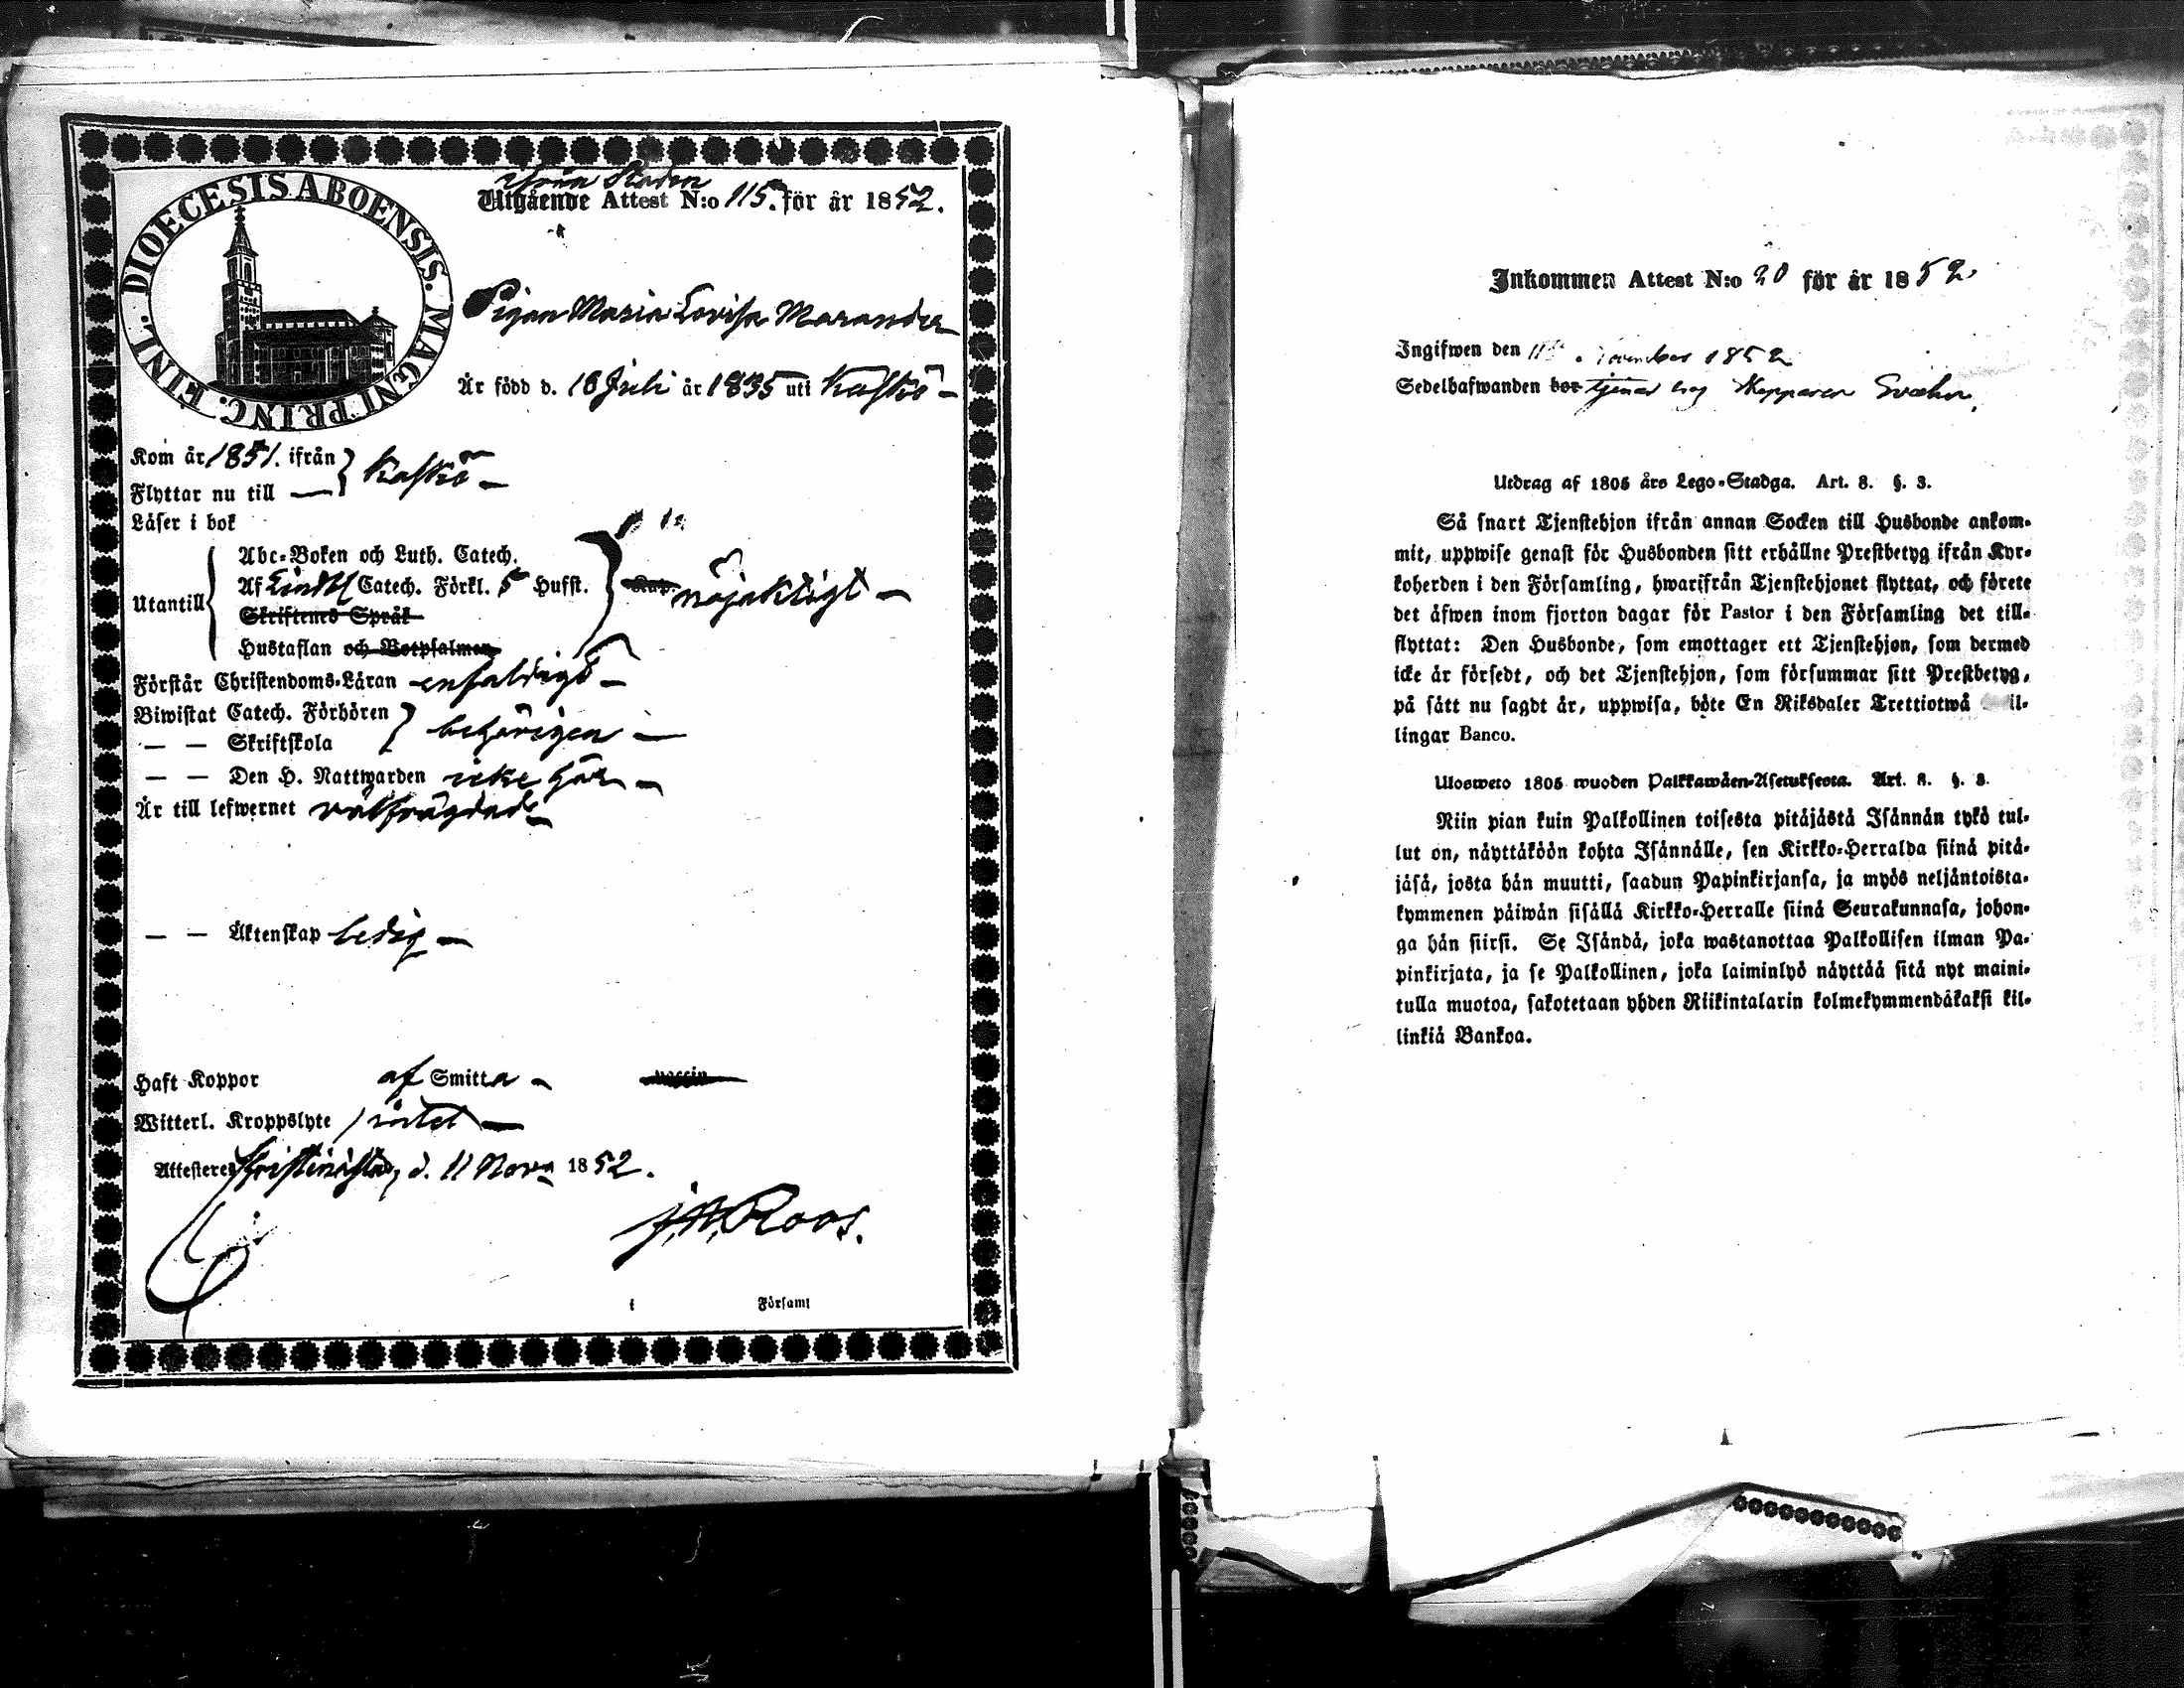 DIOECESIS ABOENSIS. MAGNI PRINC. FINL.
ifrån Staden
Utgående Attest N:o 115. för år 1852.
Pigan Maria Lovisa Marander
Är född d. 18 Juli år 1835 uti Kaskö —
Kom år 1851. ifrån } Kaskö —
Flyttar nu till —
Läser i bok
Utantill { Abc-Boken och Luth. Catech.
Af Lindbl Catech. Förkl. 5 Hufst. } nöjaktigt —
Skriftenes Språk
Hustaflan och Botpsalmen
Förstår Christendoms-Läran enfaldigt —
Biwistat Catech. Förhören } behörigen —
— — Skriftskola
— — Den H. Nattwarden icke här —
Är till lefwernet välfrägdad —
— — Äktenskap ledig —
Haft Koppor af Smitta — vaccin
Witterl. Kroppslyte intet —
Attesteres Kristinestad, d. 11 Nov. 1852.
J. N. Roos.
i Församl
Inkommen Attest N:o 20 för år 1852.
Ingifwen den November 1852
Sedelhafwanden bor tjenar hos Skepparen Svahn.
Utdrag af 1805 års Lego-Stadga. Art. 8. §. 3.
Så snart Tjenstehjon ifrån annan Socken till Husbonde ankom-
mit, uppwise genast för Husbonden sitt erhållne Prestbetyg ifrån Kyr-
koherden i den Församling, hwarifrån Tjenstehjonet flyttat, och förete
det äfwen inom fjorton dagar för Pastor i den Församling det till-
flyttat: Den Husbonde, som emottager ett Tjenstehjon, som dermed
icke är försedt, och det Tjenstehjon, som försummar sitt Prestbetyg,
på sätt nu sagdt är, uppwisa, böte En Riksdaler Trettiotwå il-
lingar Banco.
Ulosweto 1805 wuoden Palkkawäen-Asetuksesta. Art. 8. §. 3.
Niin pian kuin Palkollinen toisesta pitäjästä Isännän tykö tul-
lut on, näyttäköön kohta Isännälle, sen Kirkko-Herralda siinä pitä-
jäsä, josta hän muutti, saadun Papinkirjansa, ja myös neljäntoista-
kymmenen päiwän sisällä Kirkko-Herralle siinä Seurakunnasa, johon-
ga hän siirsi. Se Isändä, joka wastanottaa Palkollisen ilman Pa-
pinkirjata, ja se Palkollinen, joka laiminlyö näyttää sitä nyt maini-
tulla muotoa, sakotetaan yhden Riikintalarin kolmekymmendäkaksi kil-
linkiä Bankoa.